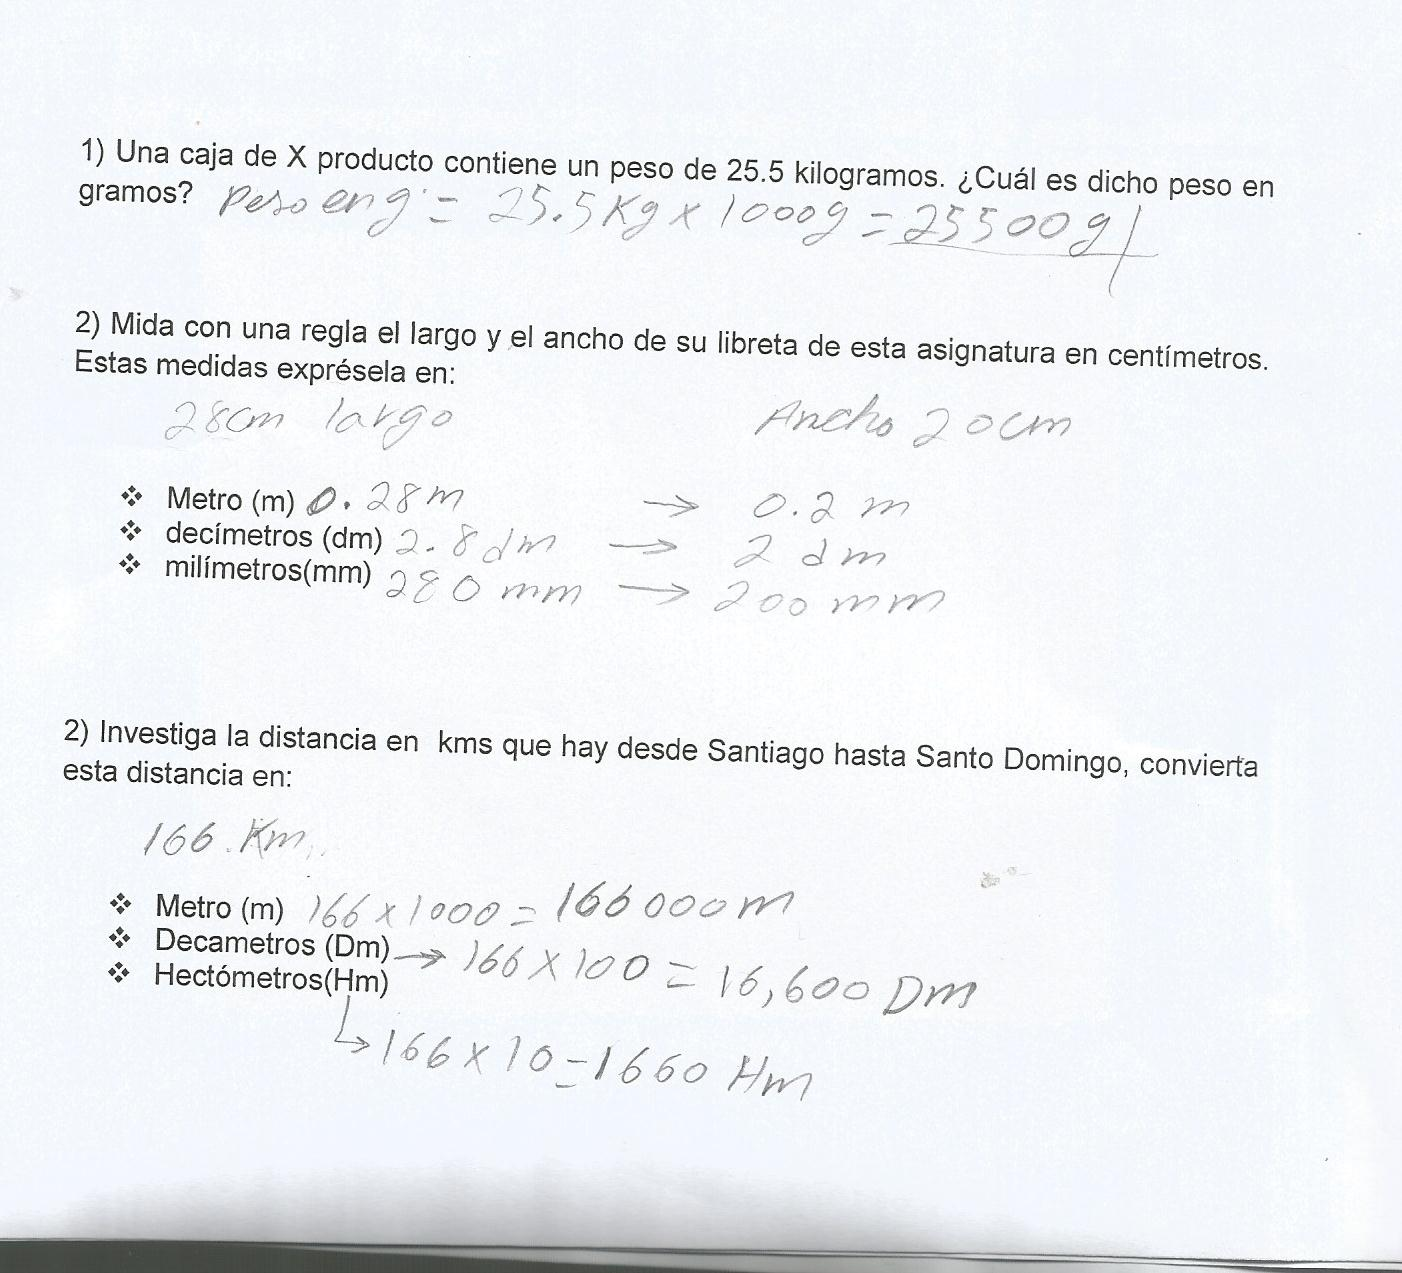 1) Una caja de X producto contiene un peso de 25.5 kilogramos. ¿Cuál es dicho peso en
gramos? Peso en g = 25.5 Kg x 1000g = 25500g
2) Mida con una regla el largo y el ancho de su libreta de esta asignatura en centímetros.
Estas medidas exprésela en:
28cm largo Ancho 20cm
❖ Metro (m) 0.28m → 0.2 m
❖ decímetros (dm) 2.8dm → 2 dm
❖ milímetros(mm) 280 mm → 200 mm
2) Investiga la distancia en kms que hay desde Santiago hasta Santo Domingo, convierta
esta distancia en:
166.Km
❖ Metro (m) 166 x 1000 = 166000m
❖ Decametros (Dm) → 166 x 100 = 16,600 Dm
❖ Hectómetros(Hm)
↳ 166 x 10 = 1660 Hm